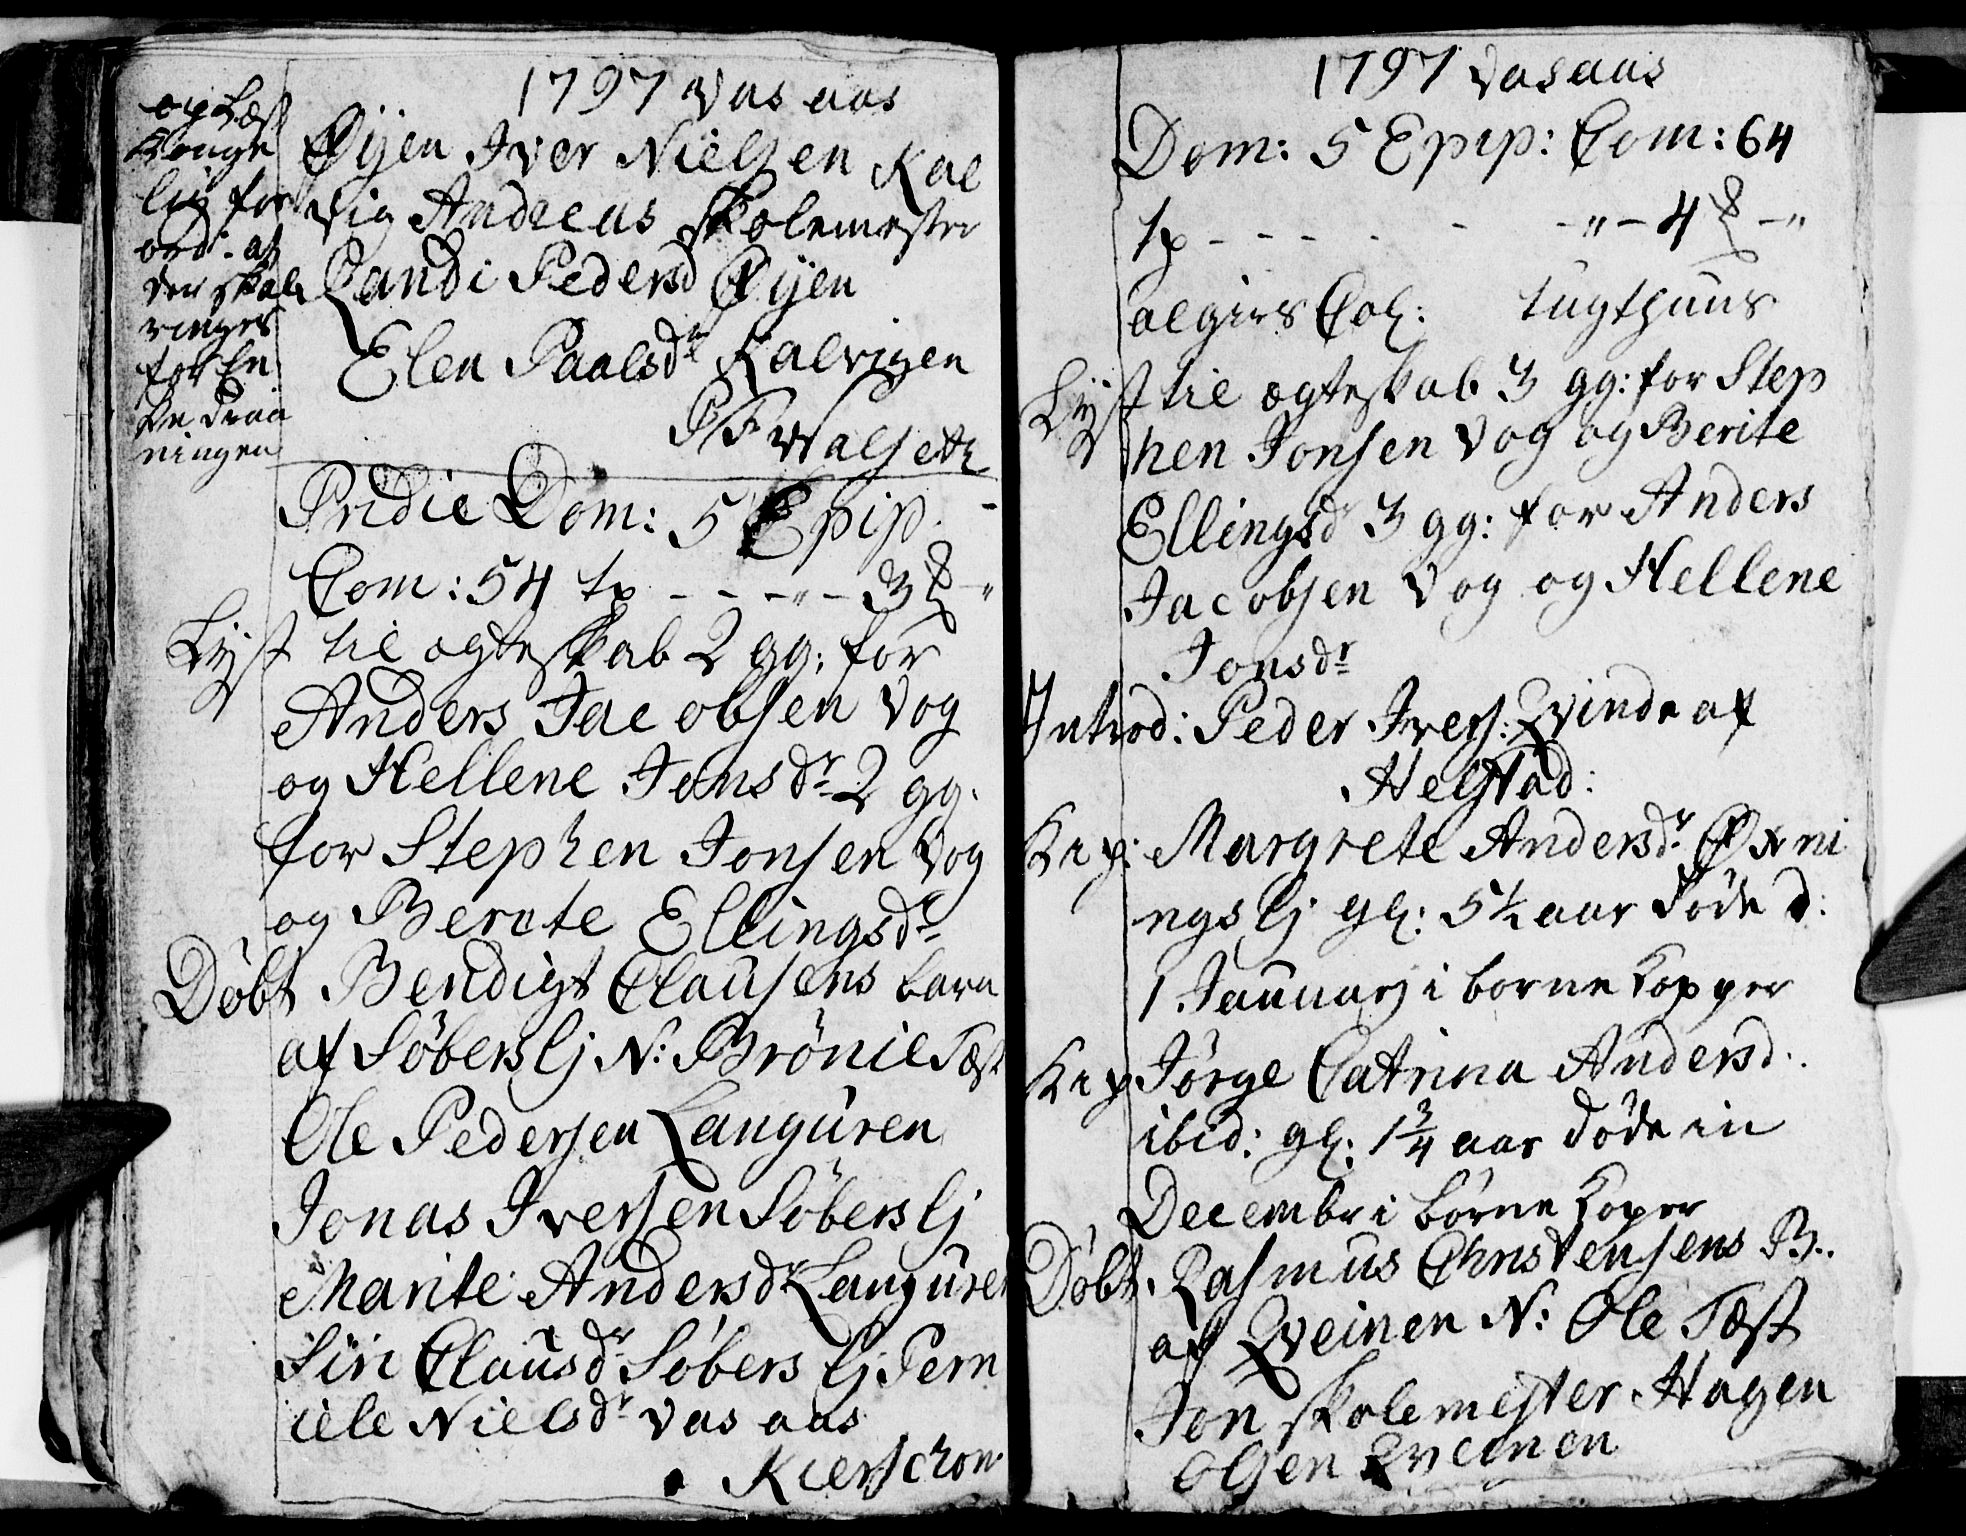 1797 Vas aas
oplæst
Konge
lig for
ord: at
der skal
ringes
for En
De Draa
ningen
Øijen Iver Nielsen Kal
vig Andreas Skolemester
Randi Pedersd Øijen
Elen Paalsdr Kalvigen
PF Walseth
Pridie Dom: 5 Epip
Com: 54 tp - - - " - 3 - "
Lyst til ægteskab 2 gg: for
Anders Jacobsen Vog
og Hellene Jonsdr 2 gg.
for Stephen Jonsen Vog
og Berete Ellingsdr
Døbt Bendigt Clausens barn
af Søberslj N: Brönil Test
Ole Pedersen Languren
Jonas Iversen Søberslj
Marite Andersdr Languren
Siri Clausdr Søberslj Pern
ille Nielsdr Vas aas
Kierschow
1797 Vas aas
Dom: 5 Epip: Com: 64
tp - - - - - - " - 4 - "
algirs Col: tugthuus
Lyst til ægteskab 3 gg: for Step
hen Jonsen Vog og Berite
Ellingsdr 3 gg: for Anders
Jacobsen Vog og Hellene
Jonsdr
Introd: Peder Ivers: Qvinde af
Helstad:
Margrete Andersdr Øxni
ngslj gl: 5½ aar døde d:
1 Januarj i borne kopper
Jørge Catrina Andersd.
ibid: gl: 1¾ aar døde in
Decembr i börne koper
Døbt. Rasmus Christensens B.
af Qveinen N: Ole Test
Jon Skolemester Hagen
Olsen Qveinen